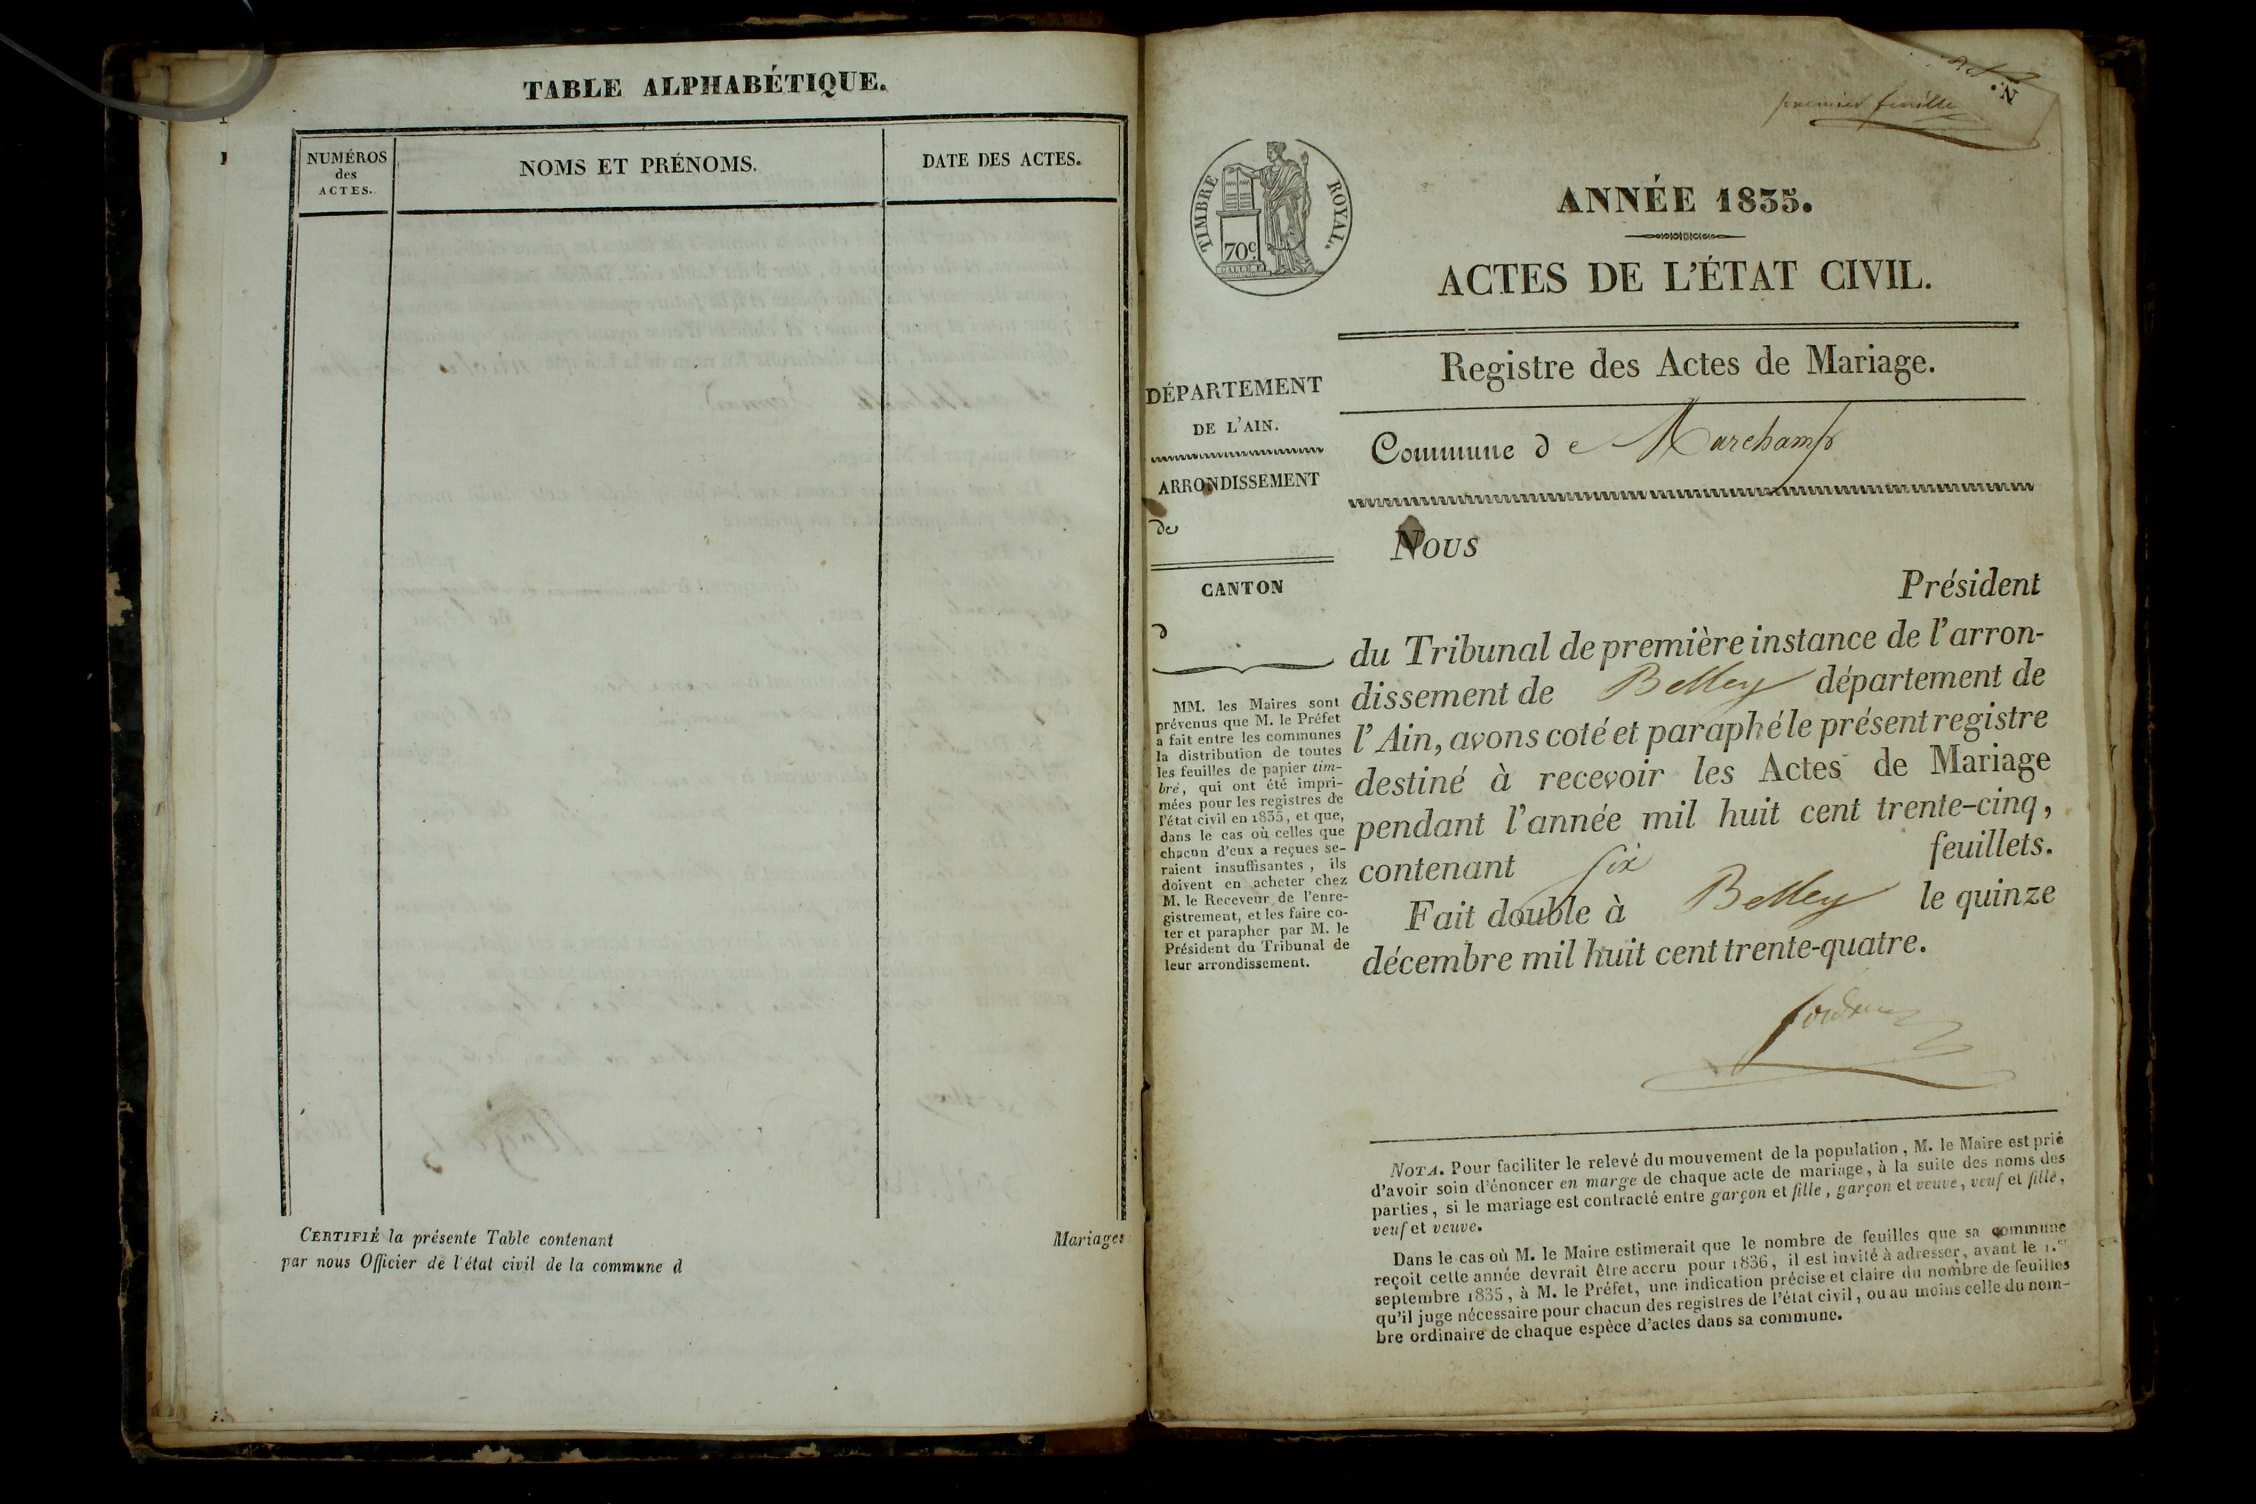 TABLE ALPHABÉTIQUE.
NUMÉROS
des
ACTES.
NOMS ET PRÉNOMS.
DATE DES ACTES.
CERTIFIÉ la présente Table contenant Mariages
par nous Officier de l'état civil de la commune d
premier feuille
N.
TIMBRE ROYAL.
70c
ANNÉE 1835.
ACTES DE L'ÉTAT CIVIL.
Registre des Actes de Mariage.
DÉPARTEMENT
DE L'AIN.
ARRONDISSEMENT
de
CANTON
d
MM. les Maires sont
prévenus que M. le Préfet
a fait entre les communes
la distribution de toutes
les feuilles de papier tim-
bré, qui ont été impri-
mées pour les registres de
l'état civil en 1835, et que,
dans le cas où celles que
chacun d'eux a reçues se-
raient insuffisantes, ils
doivent en acheter chez
M. le Receveur de l'enre-
gistrement, et les faire co-
ter et parapher par M. le
Président du Tribunal de
leur arrondissement.
Commune de Marchamp
Nous
Président
du Tribunal de première instance de l'arron-
dissement de Belley département de
l'Ain, avons coté et paraphé le présent registre
destiné à recevoir les Actes de Mariage
pendant l'année mil huit cent trente-cinq,
contenant six feuillets.
Fait double à Belley le quinze
décembre mil huit cent trente-quatre.
NOTA. Pour faciliter le relevé du mouvement de la population, M. le Maire est prié
d'avoir soin d'énoncer en marge de chaque acte de mariage, à la suite des noms des
parties, si le mariage est contracté entre garçon et fille, garçon et veuve, veuf et fille,
veuf et veuve.
Dans le cas où M. le Maire estimerait que le nombre de feuilles que sa commune
reçoit cette année devrait être accru pour 1836, il est invité à adresser, avant le 1.er
septembre 1835, à M. le Préfet, une indication précise et claire du nombre de feuilles
qu'il juge nécessaire pour chacun des registres de l'état civil, ou au moins celle du nom-
bre ordinaire de chaque espèce d'actes dans sa commune.